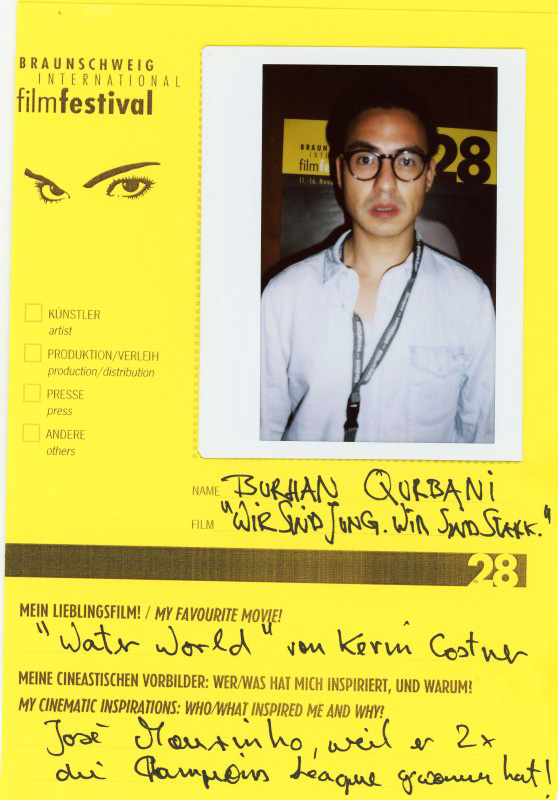 BRAUNSCHWEIG
INTERNATIONAL
filmfestival
BRAUN
INT
film
11.-16. Nov
28
KÜNSTLER
artist
PRODUKTION/VERLEIH
production/distribution
PRESSE
press
ANDERE
others
NAME BURHAN QURBANI
FILM "WIR SIND JUNG. WIR SIND STARK."
28
MEIN LIEBLINGSFILM! / MY FAVOURITE MOVIE!
"Water World" von Kevin Costner
MEINE CINEASTISCHEN VORBILDER: WER/WAS HAT MICH INSPIRIERT, UND WARUM?
MY CINEMATIC INSPIRATIONS: WHO/WHAT INSPIRED ME AND WHY?
José Mourinho, weil er 2x
die Champions League gewonnen hat!